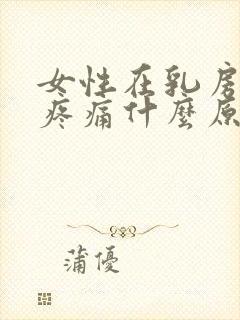 女性在乳房
疼痛什麼原
蒲優